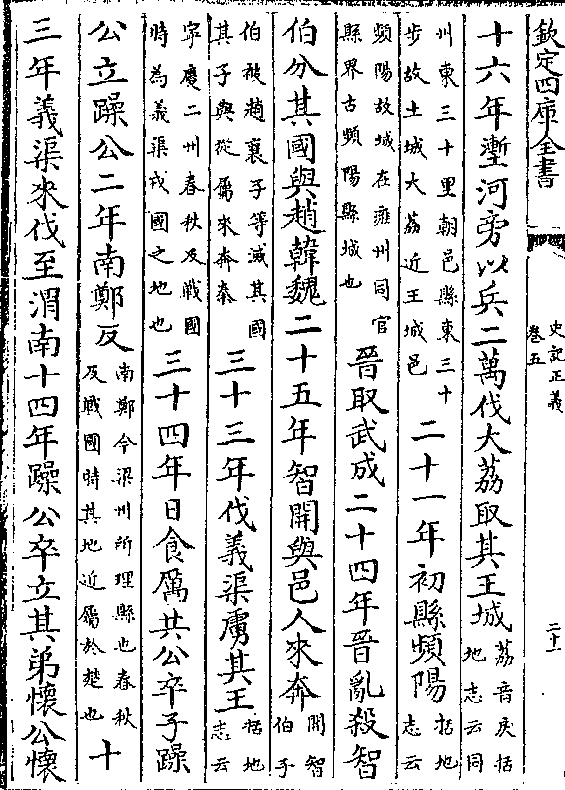 欽定四庫全書
史記正義
卷五
二十一
十六年塹河旁以兵二萬伐大荔取其王城荔音戾括地志云同
州東三十里朝邑縣東三十步故王城大荔近王城邑二十一年初縣頻陽括地志云
頻陽故城在雍州同官縣界古頻陽縣城也晉取武成二十四年晉亂殺智
伯分其國與趙韓魏二十五年智開與邑人來奔開智伯子
伯被趙襄子等滅其國其子與從屬來奔秦三十三年伐義渠虜其王括地志云
寧慶二州春秋及戰國時為義渠戎國之地也三十四年日食厲共公卒子躁
公立躁公二年南鄭反南鄭今梁州所理縣也春秋及戰國時其地近屬於楚也十
三年義渠來伐至渭南十四年躁公卒立其弟懷公懷